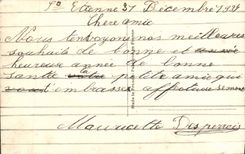 St Etienne 31 Décembre 1921
Chère amie
Nous tenvoyons nos meilleures
souhaits de bonne et
heureuse année de bonne
santé ta petite amie qui
t'embrasses affectueusement
Mauricette